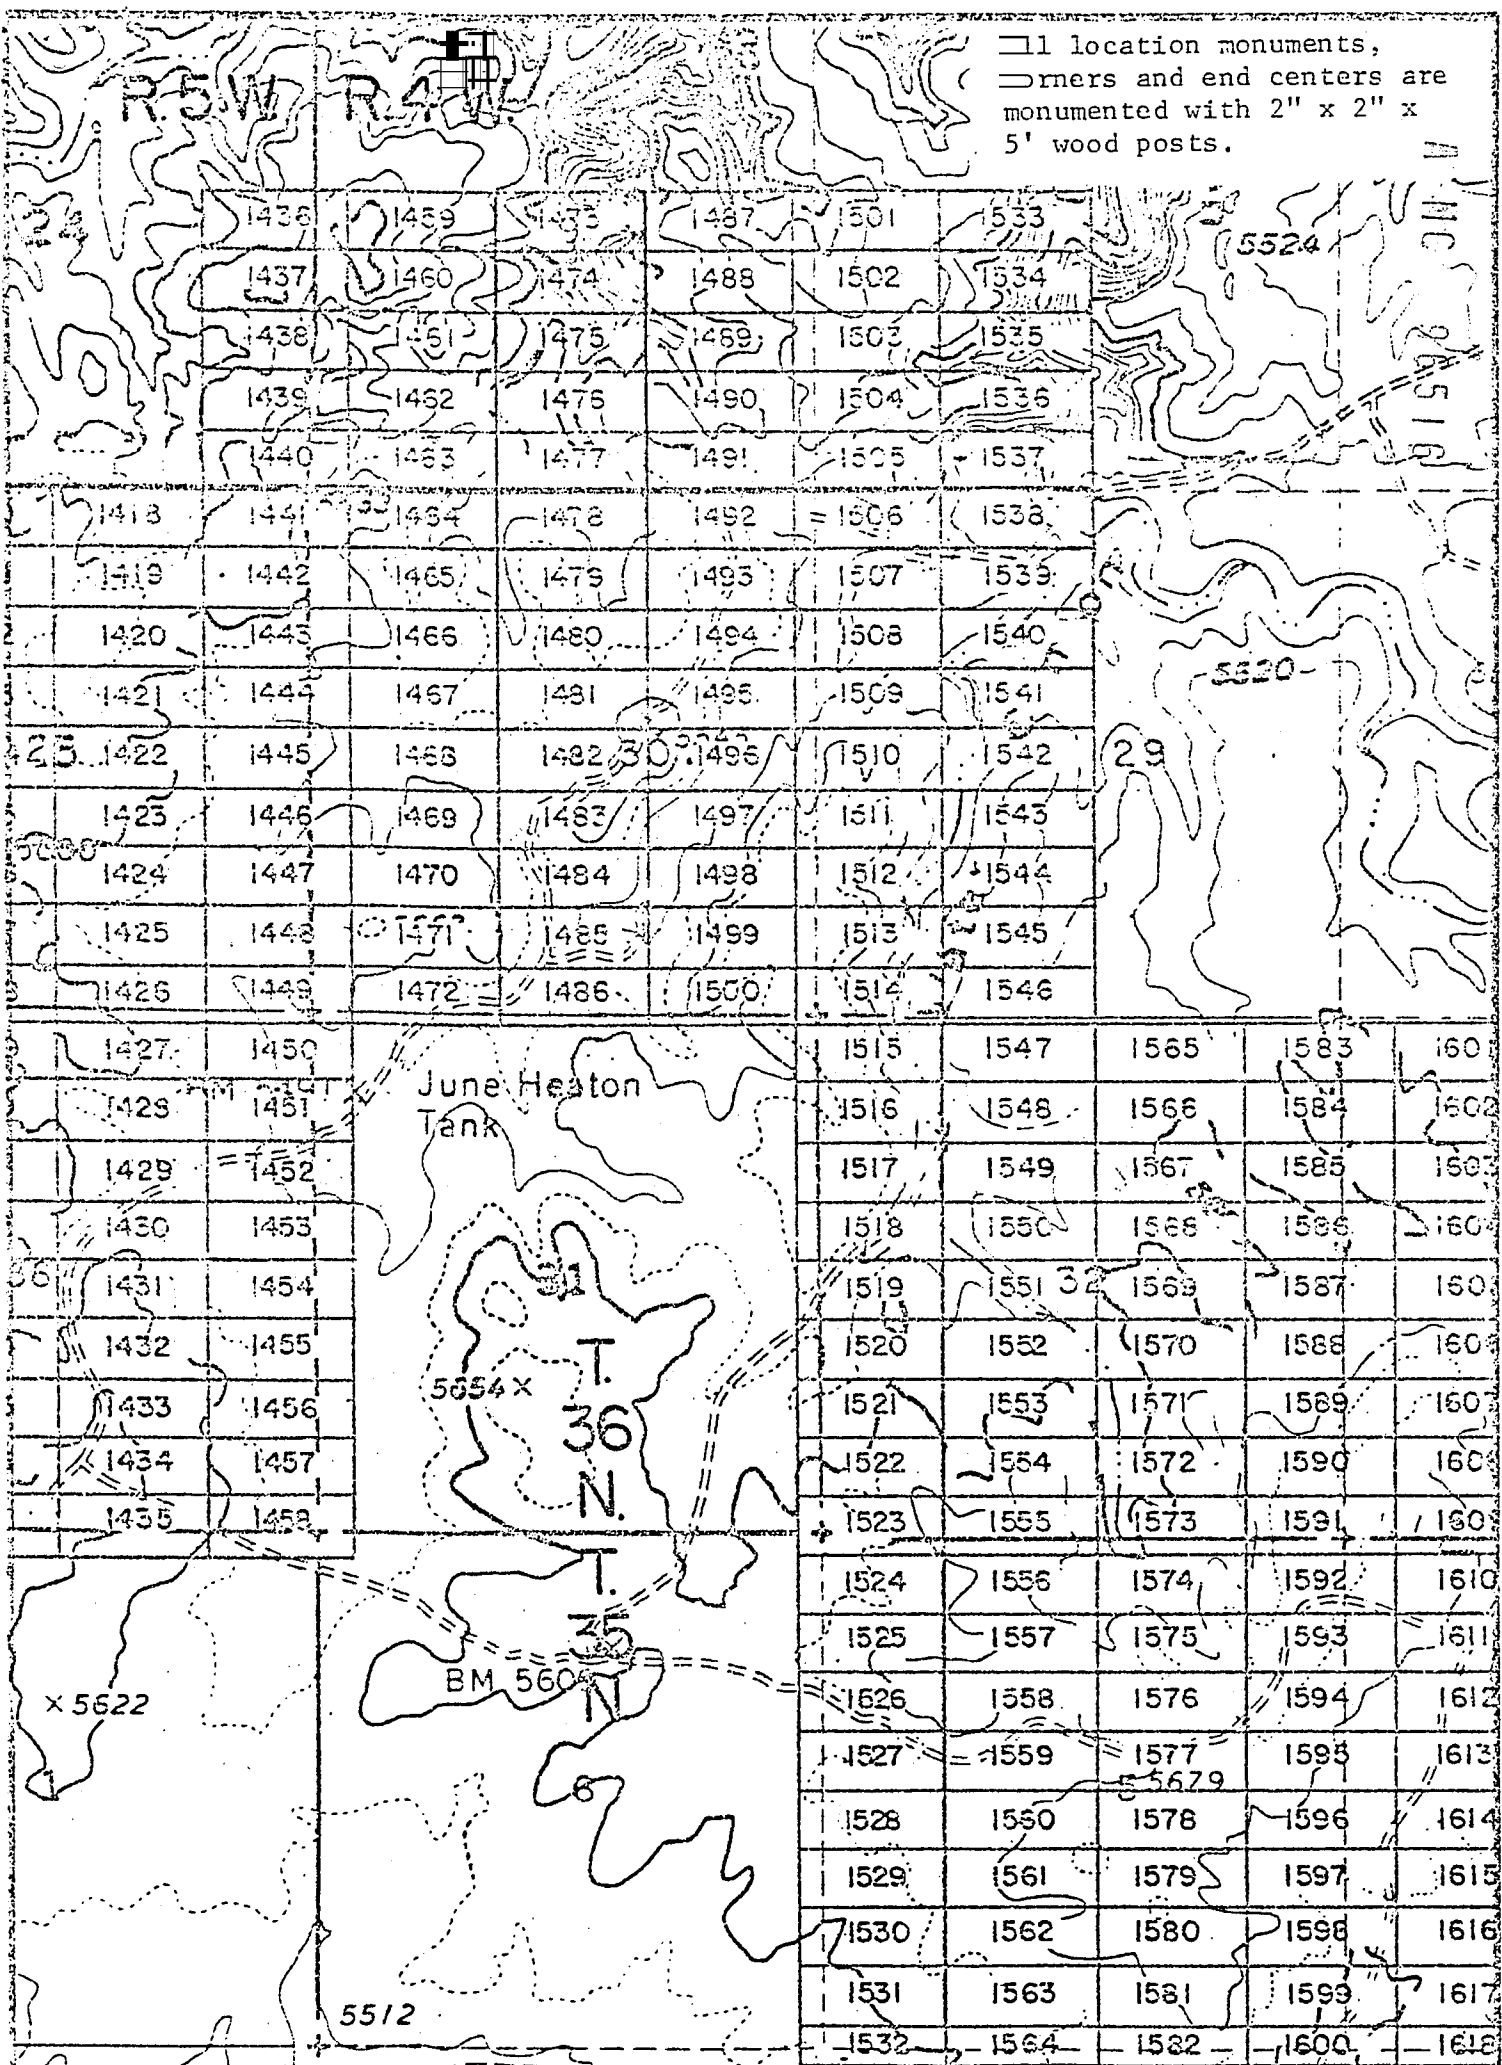 ll location monuments,
rners and end centers are
monumented with 2" x 2" x
5' wood posts.
R.5W. R.4W.
A MC 86516
24
5524
1436 1459 1473 1487 1501 1533
1437 1460 1474 1488 1502 1534
1438 1461 1475 1489 1503 1535
1439 1462 1476 1490 1504 1536
1440 1463 1477 1491 1505 1537
1418 1441 1464 1478 1492 1506 1538
1419 1442 1465 1479 1493 1507 1539
1420 1443 1466 1480 1494 1508 1540
1421 1444 1467 1481 1495 1509 1541
5520
25 1422 1445 1468 1482 30 1496 1510 1542 29
1423 1446 1469 1483 1497 1511 1543
1424 1447 1470 1484 1498 1512 1544
1425 1448 1471 1485 1499 1513 1545
1426 1449 1472 1486 1500 1514 1546
1427 1450 1515 1547 1565 1583 160
June Heaton
Tank
1428 1451 1516 1548 1566 1584 1602
1429 1452 1517 1549 1567 1585 1603
1430 1453 1518 1550 1568 1586 160
36 1431 1454 31 1519 1551 32 1569 1587 160
1432 1455 1520 1552 1570 1588 160
5654 ×
T.
36
N.
1433 1456 1521 1553 1571 1589 160
1434 1457 1522 1554 1572 1590 160
1435 1458 1523 1555 1573 1591 160
T.
35
N
1524 1556 1574 1592 1610
1525 1557 1575 1593 1611
BM 560
× 5622
1526 1558 1576 1594 1612
1527 1559 1577 1595 1613
6
5 5679
1528 1560 1578 1596 1614
1529 1561 1579 1597 1615
1530 1562 1580 1598 1616
1531 1563 1581 1599 1617
5512
1532 1564 1582 1600 1618